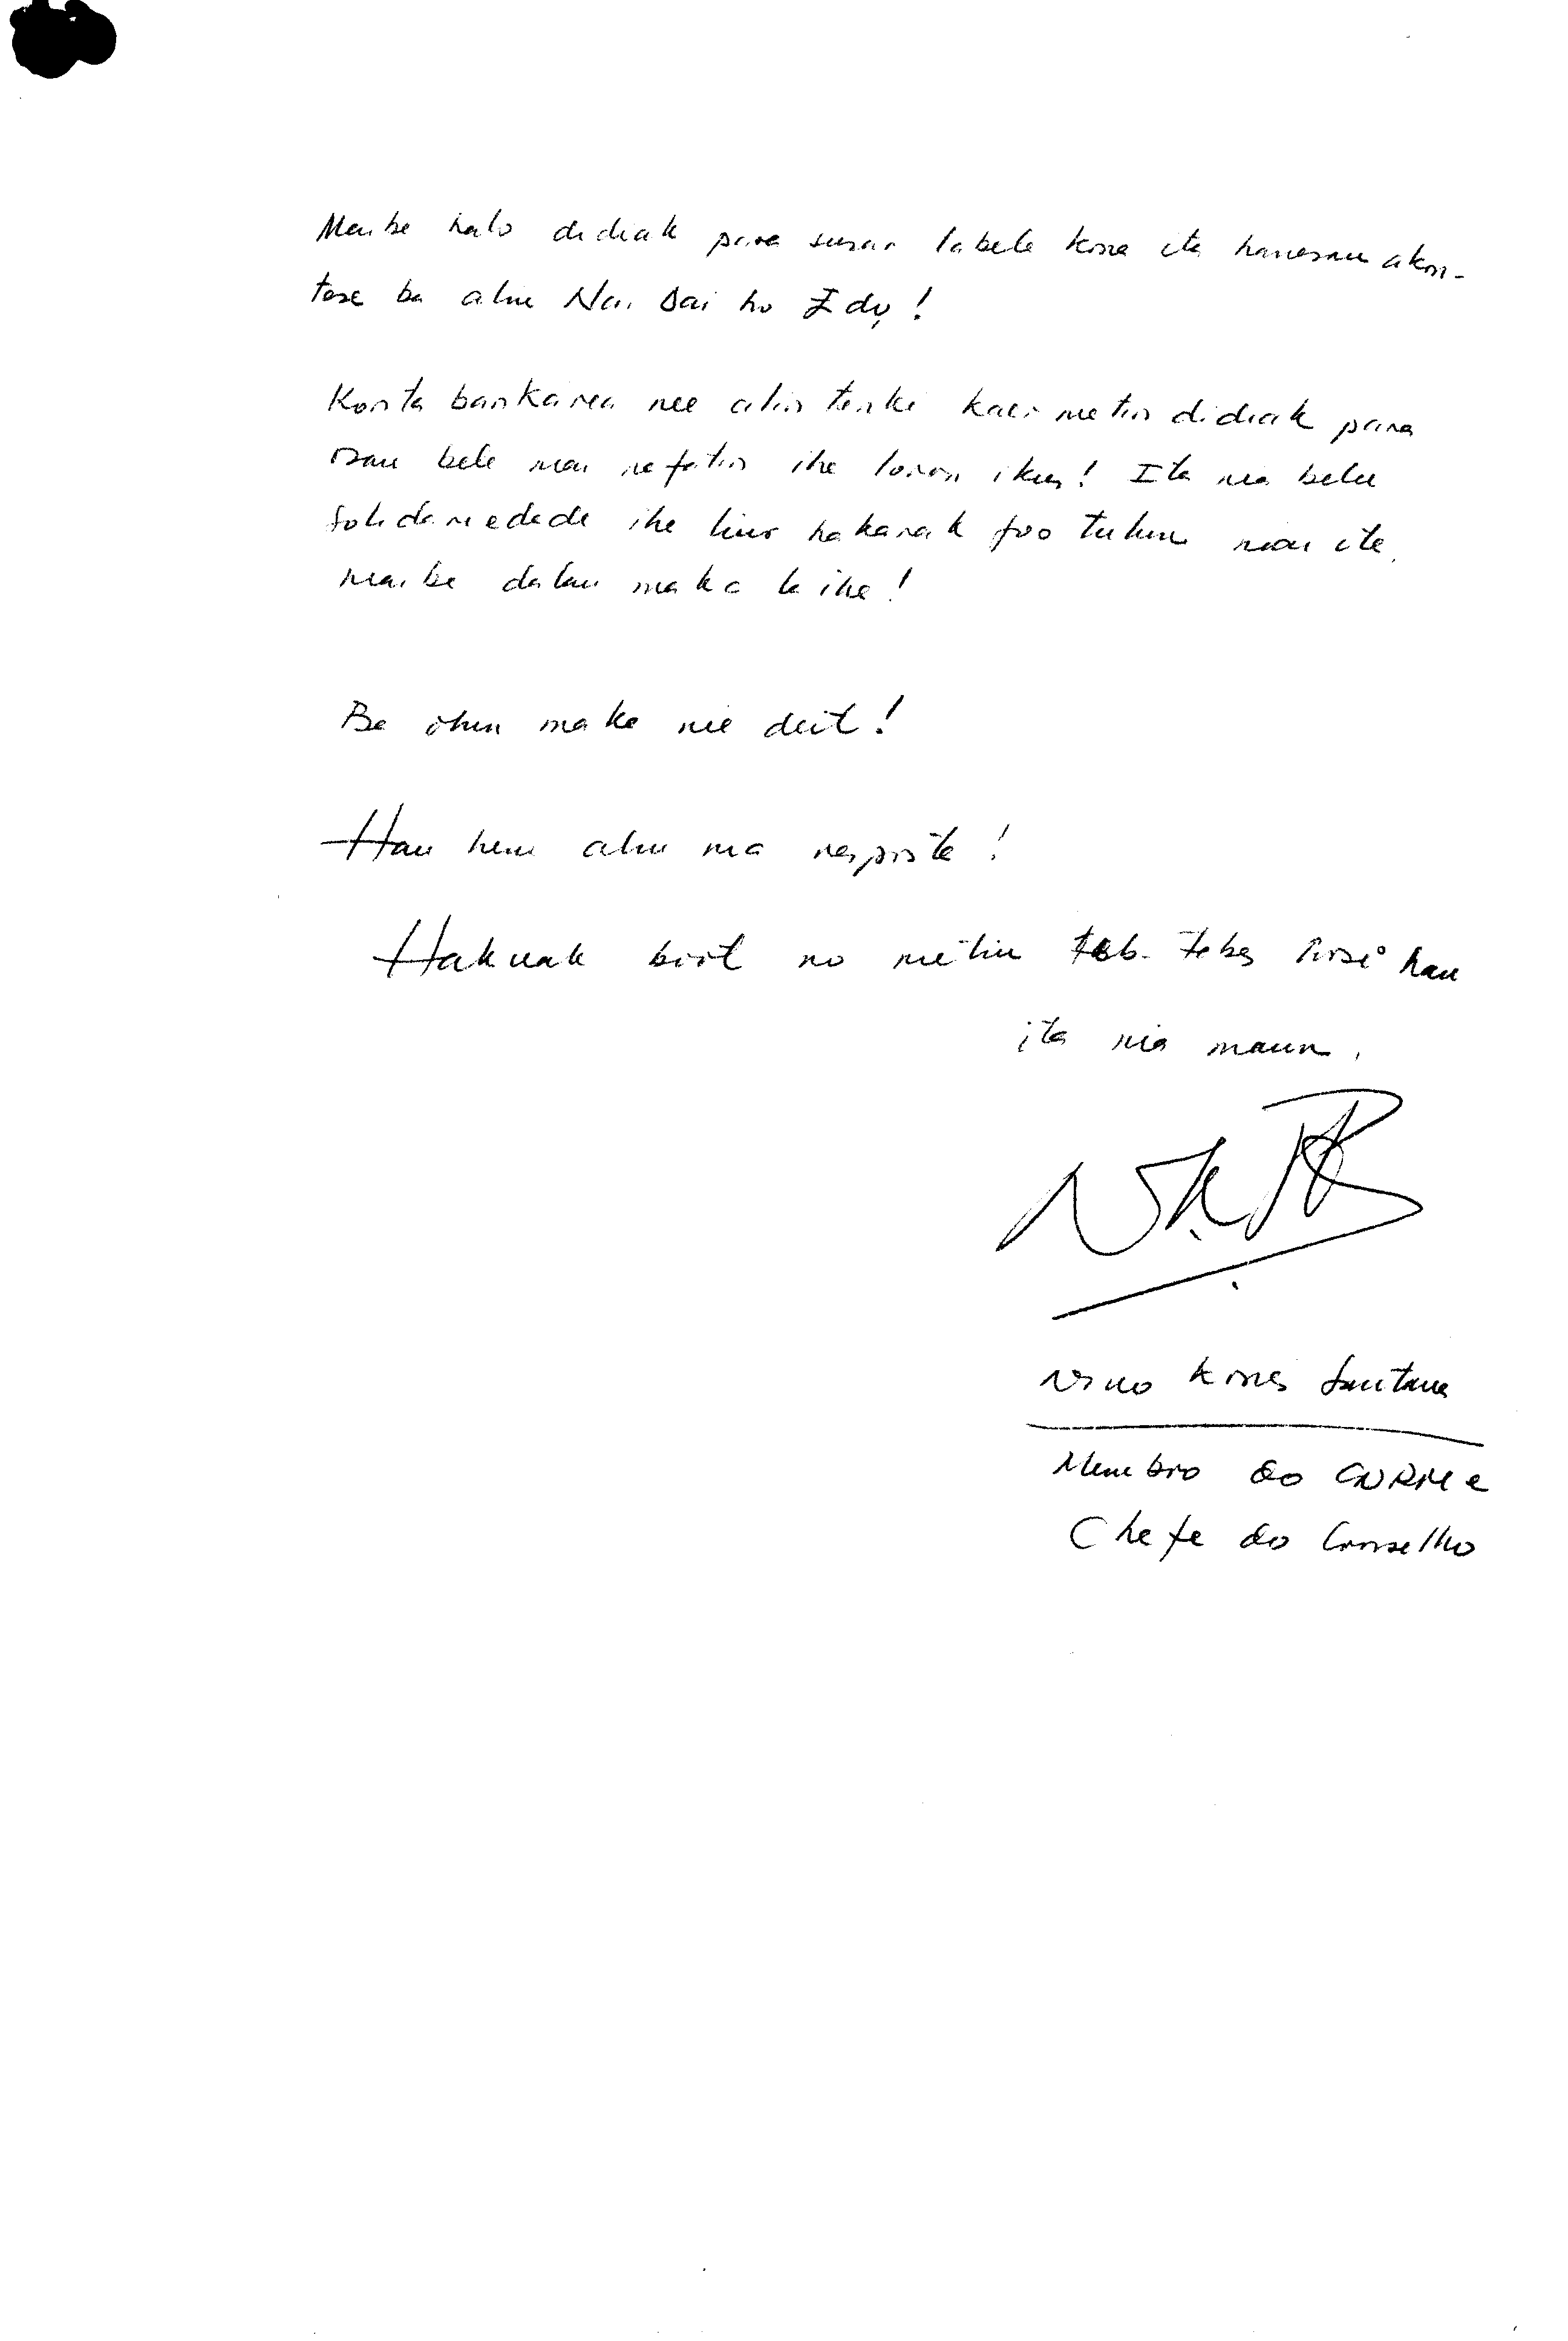 Maibe halo didiak para susar labele kona ita hanesan akon-
tese ba alin Nai Sai ho Edy!
Konta bankaria nee alin tenki kaer metin didiak para
osan bele mai nafatin ihe loron ikus! Ita nia belu
solidariedade ihe liur hakarak foo tulun mai ita.
Maibe dalan maka la ihe!
Ba ohin maka nee deit!
Hau hein alin nia resposta!
Hakuak boot no metin teb-tebes hosi hau
ita nia maun,
Nino Konis Santana
Membro do CNRM e
Chefe do Conselho